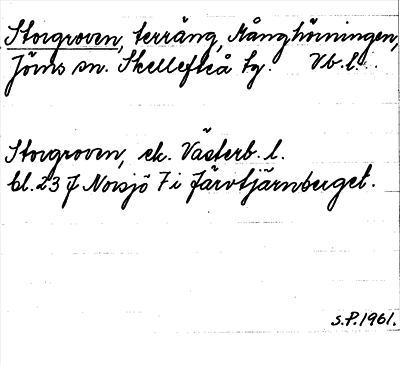 Storgroven, terräng, Månghörningen,
Jörns sn. Skellefteå tg. Vb.l.
Storgroven, ek. Västerb. l.
bl. 23 J Norsjö 7 i Järvtjärnberget.
S.P. 1961.